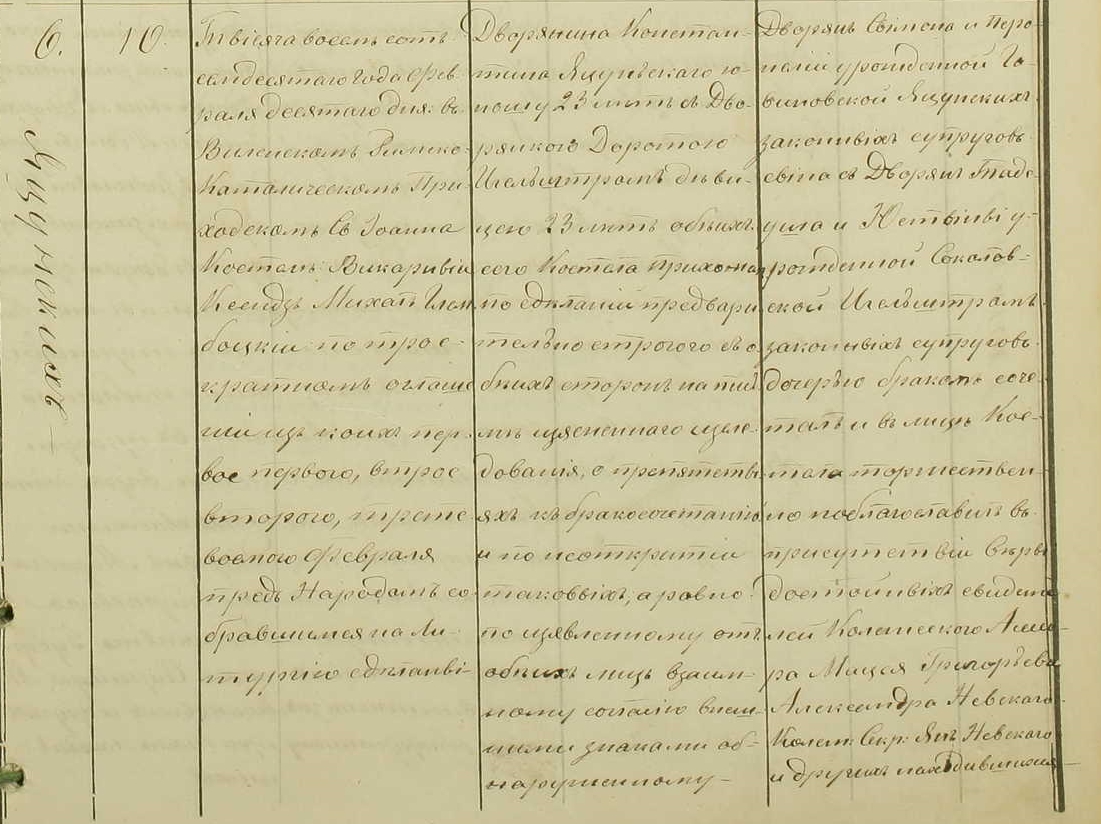 6.
10.
Яцунскихъ
Тысяча восемь сотъ
семдесятаго года Фев-
раля десятаго дня: въ
Виленскомъ Римско-
Католическомъ При
ходскомъ Св Іоанна
Костелѣ Викарный
Ксендзъ Михаилъ
боцкій по трое-
кратномъ оглаше
ніи изъ коихъ пер-
вое первого, второе
второго, трете
восмого Февраля
предъ Народомъ со
бравшимся на Ли-
тургію сдѣланны-
Дворянина Констан-
тина Яцунскаго ю-
ношу 23 лѣтъ съ Дво-
рянкою Доротою
Игельштромъ дѣви-
цею 23 лѣтъ обоихъ
сего Костела прихожан
по сдѣланіи предвари
тельно строгого съ о
боихъ сторонъ на
мѣ изясненнаго изслѣ
дованія, о препятстві
яхъ къ бракосочетанію
и по неоткрытіи
таковыхъ, а равно
по изявленному отъ
обоихъ лицъ взаим-
ному согласію внеш-
ними знаками об-
наруженному-
Дворянъ Симона и Петро
нели урожденной Го-
виновской Яцунскихъ
законныхъ супруговъ
сына съ Дворянъ Фаде-
уша и Юстыны у-
рожденной Соколов-
ской Игельштромъ
законныхъ супруговъ
дочерью бракомъ соче-
талъ и въ лицѣ Кос-
тела торжествен-
но поблагославилъ въ
присутствіи Вѣры
достойныхъ свидете
лей Колежского Ассесо-
ра Мацея Григорьева
Александра Невскаго
Колеж: Секр: Янъ Невскаго
и другихъ находившихся